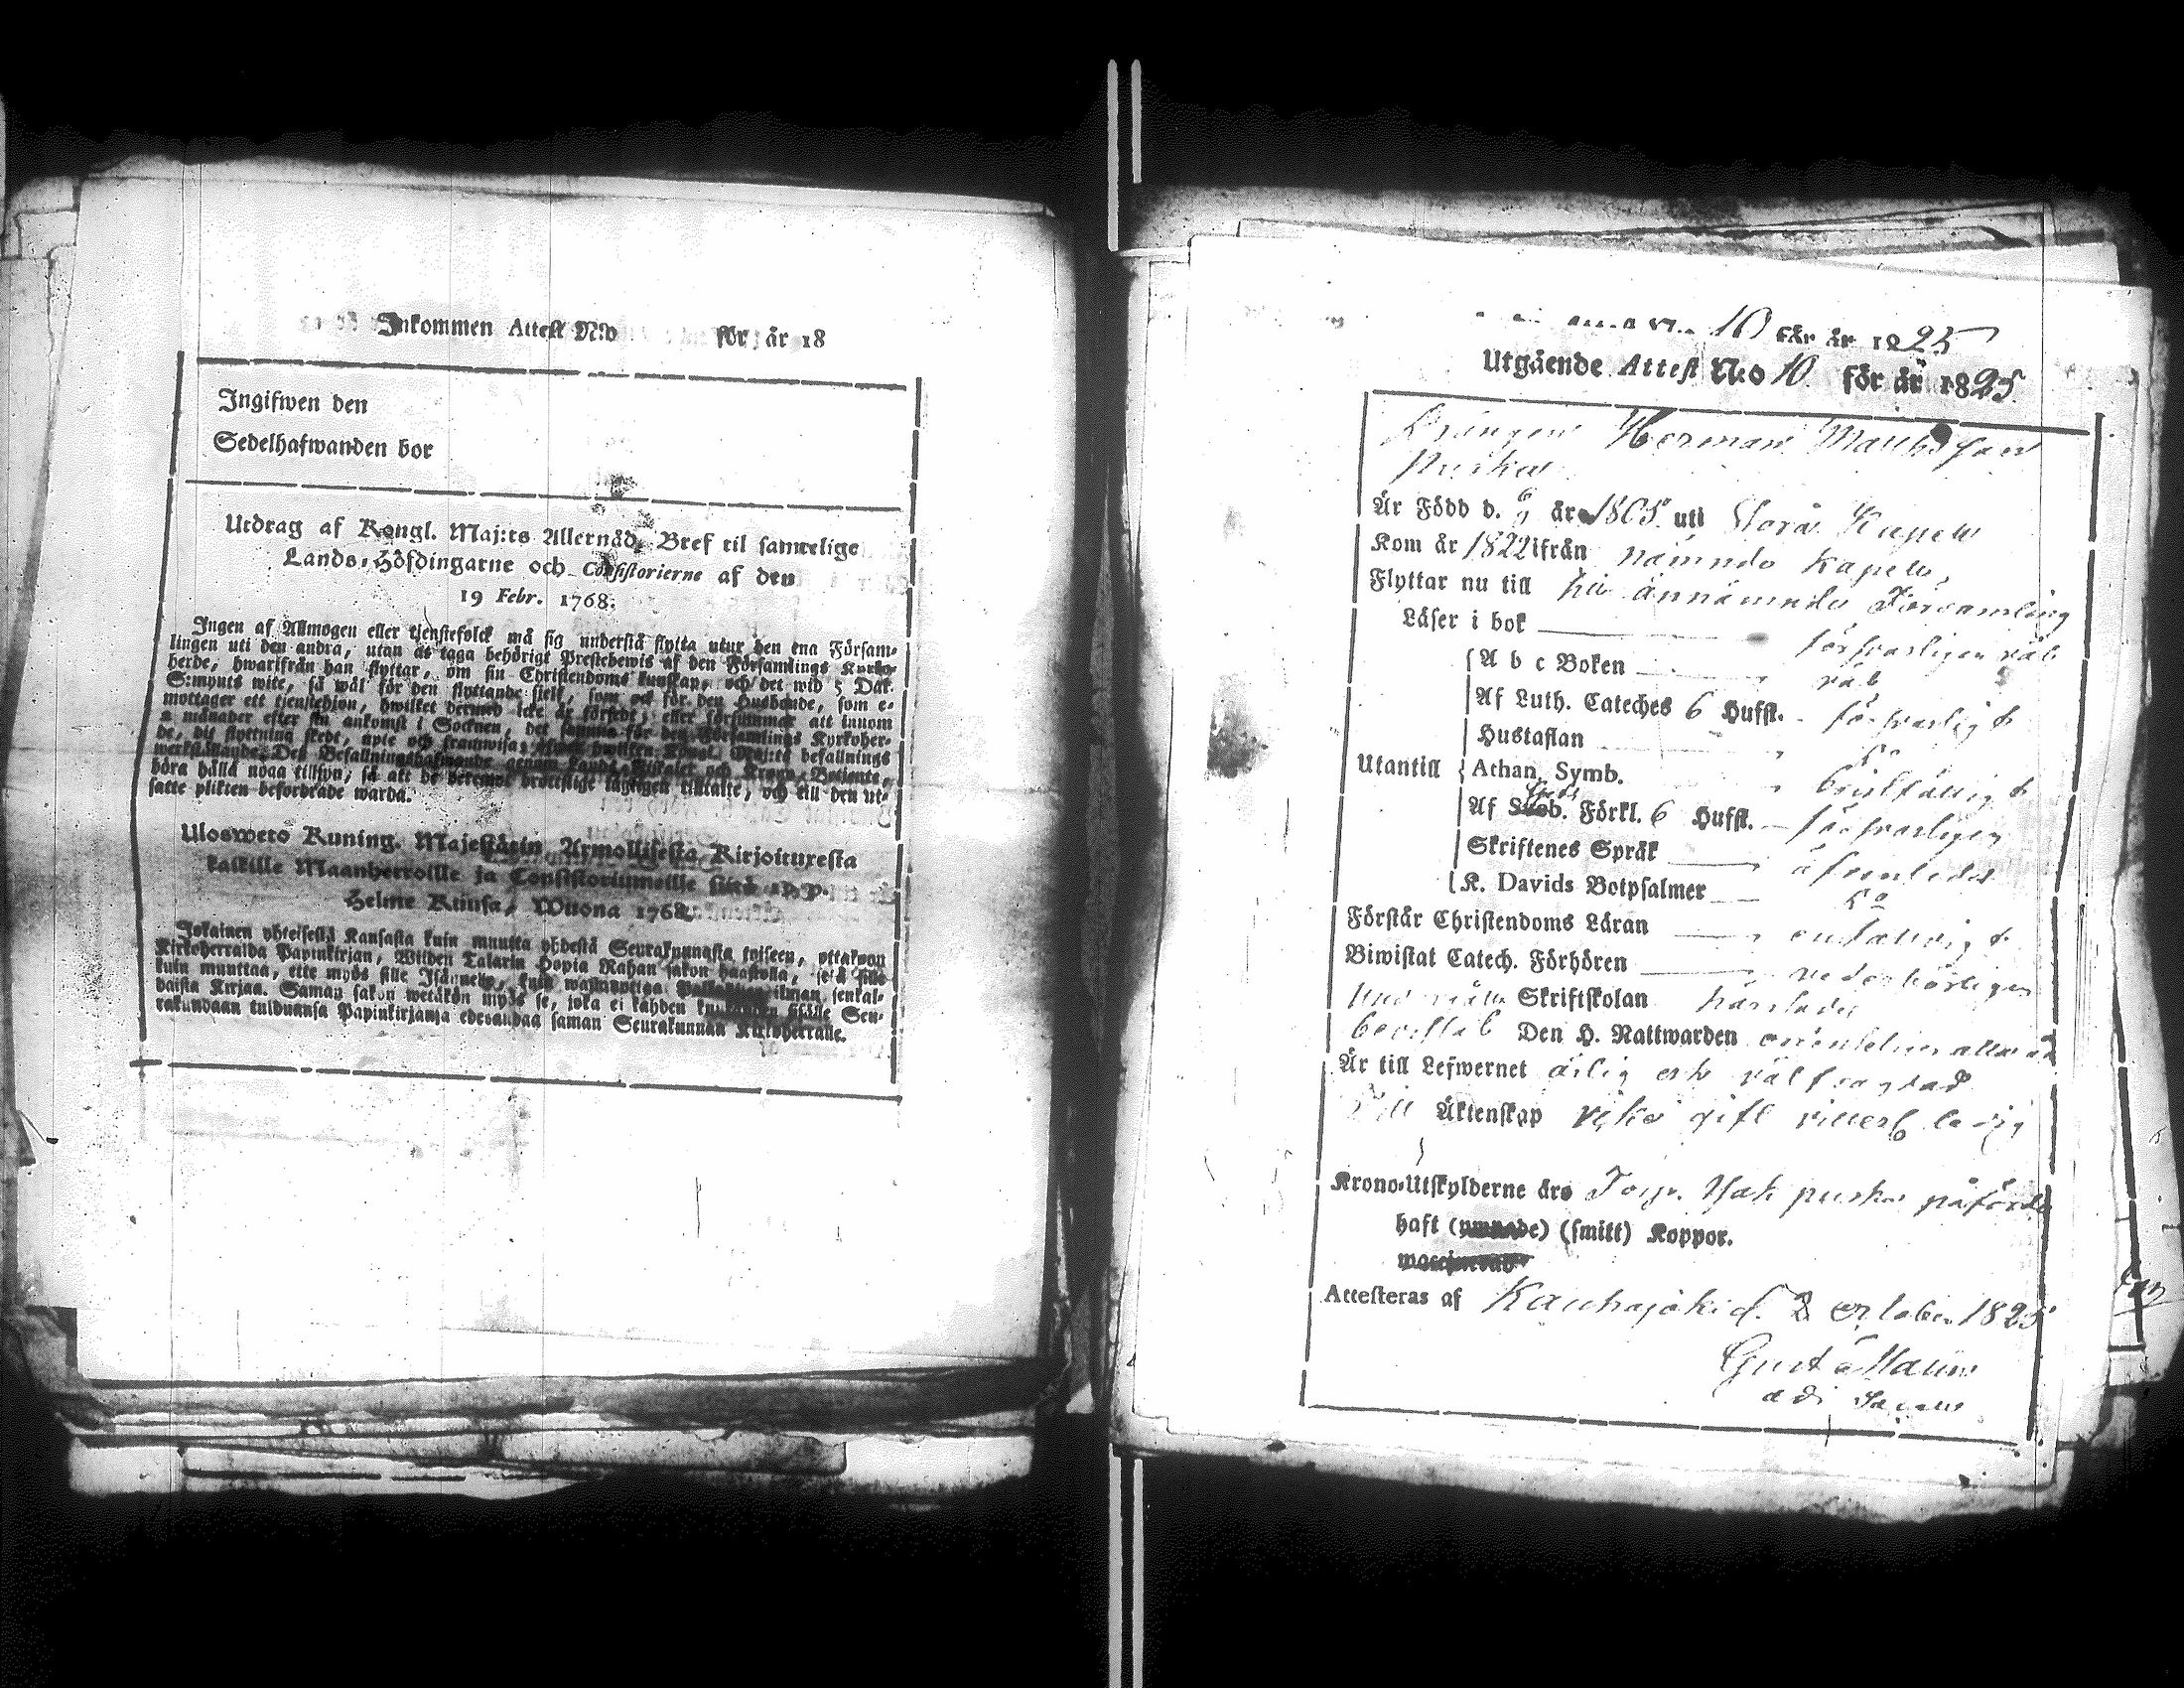 Inkommen Attest N:o för år 18
Ingifwen den
Sedelhafwanden bor
Utdrag af Kongl. Maj:ts Allernåd. Bref til samtelige
Lands-Höfdingarne och Consistorierne af den
19 Febr. 1768.
Ingen af Allmogen eller tjenstefolck må sig understå flytta utur den ena Försam-
lingen uti den andra, utan at taga behörigt Prestebewis af den Församlings Kyrko-
herde, hwarifrån han flyttar, om sin Christendoms kunskap, och det wid 5 Dal.
S:mynts wite, så wäl för den flyttande sielf, som ock för den Husbonde, som e-
mottager ett tjenstehjon, hwilket dermed icke är försedt, eller försummar att innom
2 månader efter sin ankomst i Socknen, det samma för den Församlings Kyrkoher-
de, dit flyttning skedt, upte och framwisa; öfwer hwilken Kongl. Maj:ts befallnings
werkställande, Des Befallningshafwande genom Lands-Fiskaler och Krono-Betjente,
böra hålla noga tillsyn, så att de deremot brottslige lagligen tilltalte, och till den ut-
satte plikten befordrade warda.
Ulosweto Kuning. Majestätin Armollisesta Kirjoituxesta
kaikille Maanherroille ja Consistoriumeille siitä 19. p.
Helme Kuusa, Wuona 1768.
Jokainen yhteisestä Kansasta kuin muutta yhdestä Seurakunnasta toiseen, ottakoon
Kirkoherralda Papinkirjan, Wiiden Talarin Hopia Rahan sakon haastolla, se'ä sille
kuin muuttaa, ette myös sille Isännelle, kuin wastanottaa Palkollisen ilman senkal-
daista Kirjaa. Saman sakon wetäkön myös se, joka ei kahden kuukauden sisälle Seu-
rakundaan tulduansa Papinkirjansa edesandaa saman Seurakunnan Kirkoherralle.
10 för år 1825
Utgående Attest N:o 10. för år 1825.
Drängen Herman Mattsson
Puska
Är Född d. 6/9 år 1805 uti Storå Kapell
Kom år 1822 ifrån nämnde Kapell,
Flyttar nu till ännämnde Församling
Läser i bok försvarligen väl
A b c Boken väl
Af Luth. Cateches 6 Hufst. försvarligt
Hustaflan do
Utantill Athan. Symb. enfalligt
Af Sveb. Förkl. 6 Hufst. försvarligen
Skriftenes Språk äfvenledes
K. Davids Botpsalmer do
Förstår Christendoms Läran enfalligt
Biwistat Catech. Förhören vederbörligen
Skriftskolan härstädes
bevistat Den H. Nattwarden
Är till Lefwernet ärlig och välfrägdad
Till Äktenskap icke gift ledig
Krono-Utskylderne äro Puska påförde
haft (smitt) Koppor.
Attesteras af Kauhajoki d. 8 October 1825
Gust